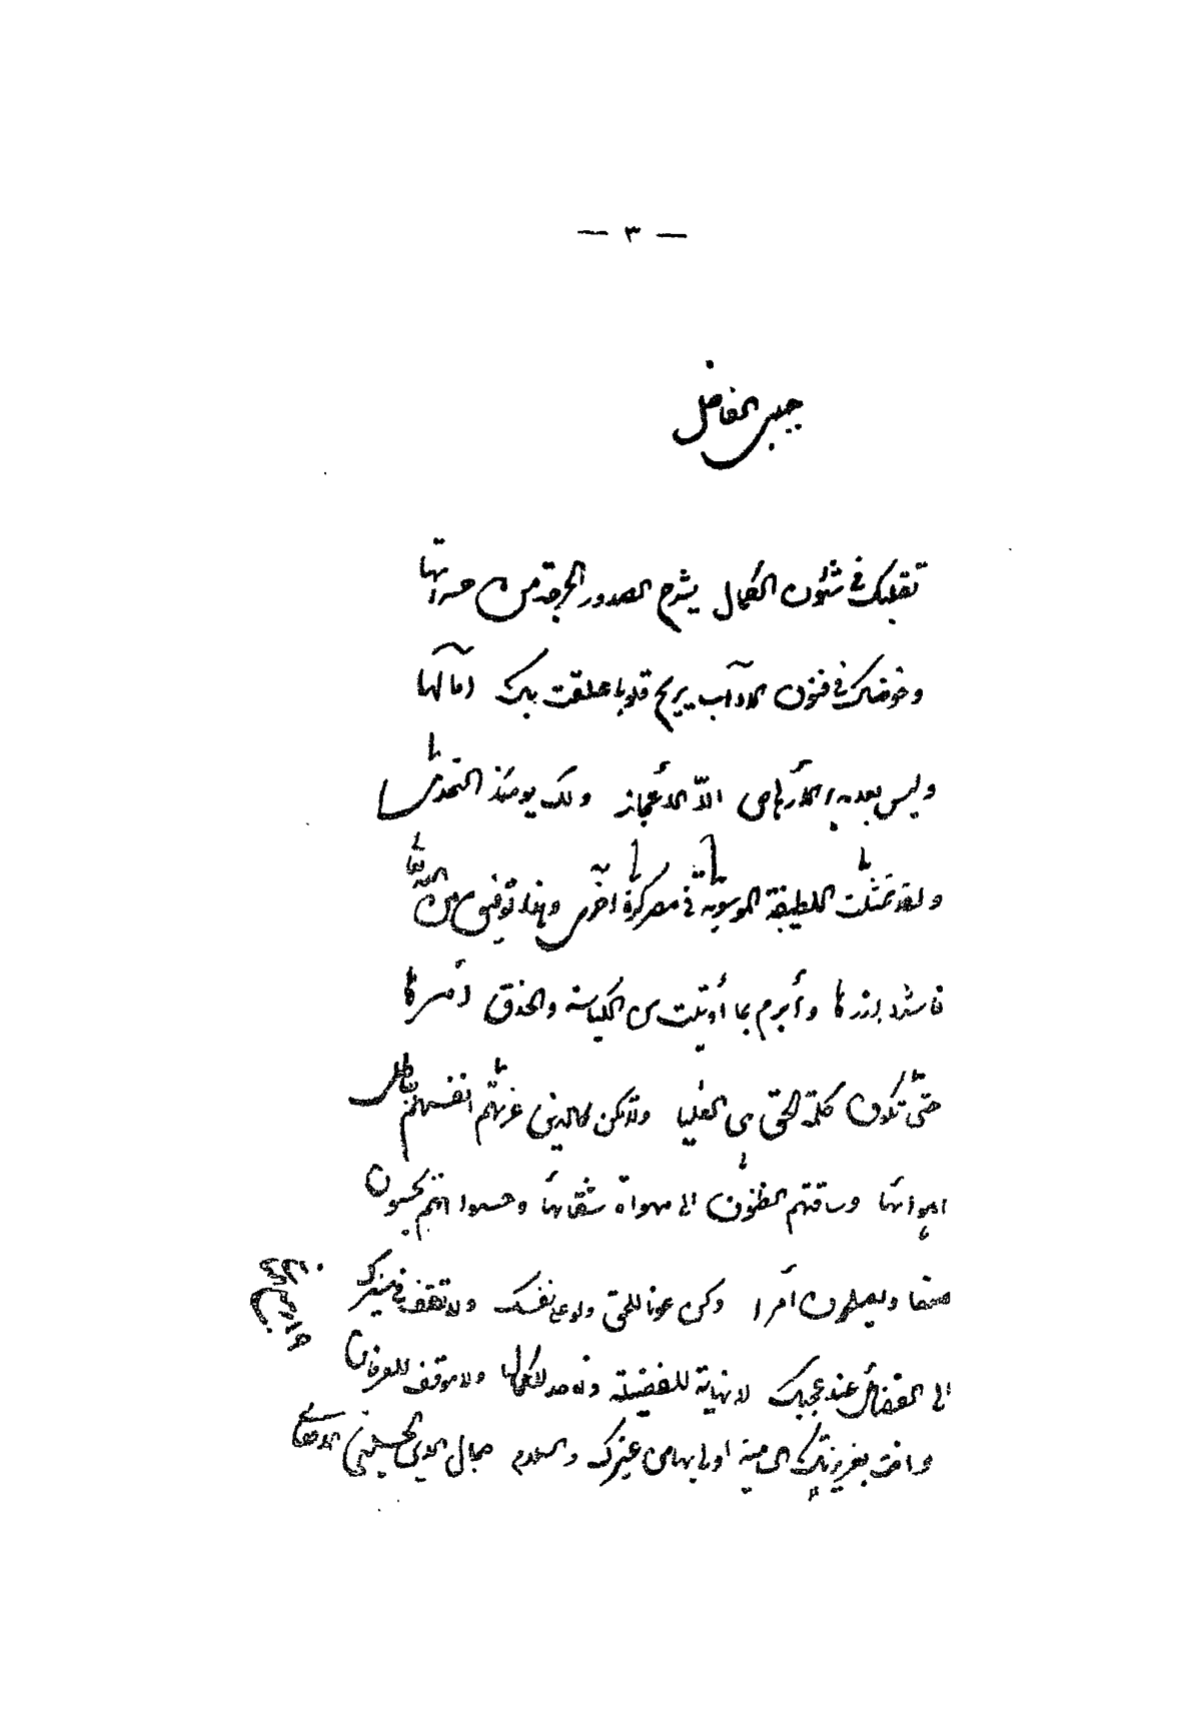 — ٣ —
حبيبي الفاضل
تقلبك في شئون الكمال يشرح الصدور الحرجة من حسراتها
وخوضك في فنون الآداب يريح قلوبا علقت بك آمالها
وليس بعد الإرهاص الا الأعجاز ولك يومئذ التحدي
ولقد تمثلت اللطيفة الموسوية في مصر كرة أخرى وهذا توفيق من الله تعالى
فاشدد ازرها وأبرم بما أوتيت من الكياسة والحذق أمرها
حتى تكون كلمة الحق هي العليا ولا تكن كالذين غرتهم انفسهم بباطل
اهوائها وساقتهم الظنون الى مهواة شقائها وحسبوا انهم يحسنون
صنعا ويصلحون أمرا وكن عونا للحق ولو على نفسك ولا تقف في سيرك
الى الفضائل عند عجبك لا نهاية للفضيلة ولا حد للكمال ولا موقف للعرفان
وانت بغريزتك السامية اولى بها من غيرك والسلام جمال الدين الحسيني الافغاني